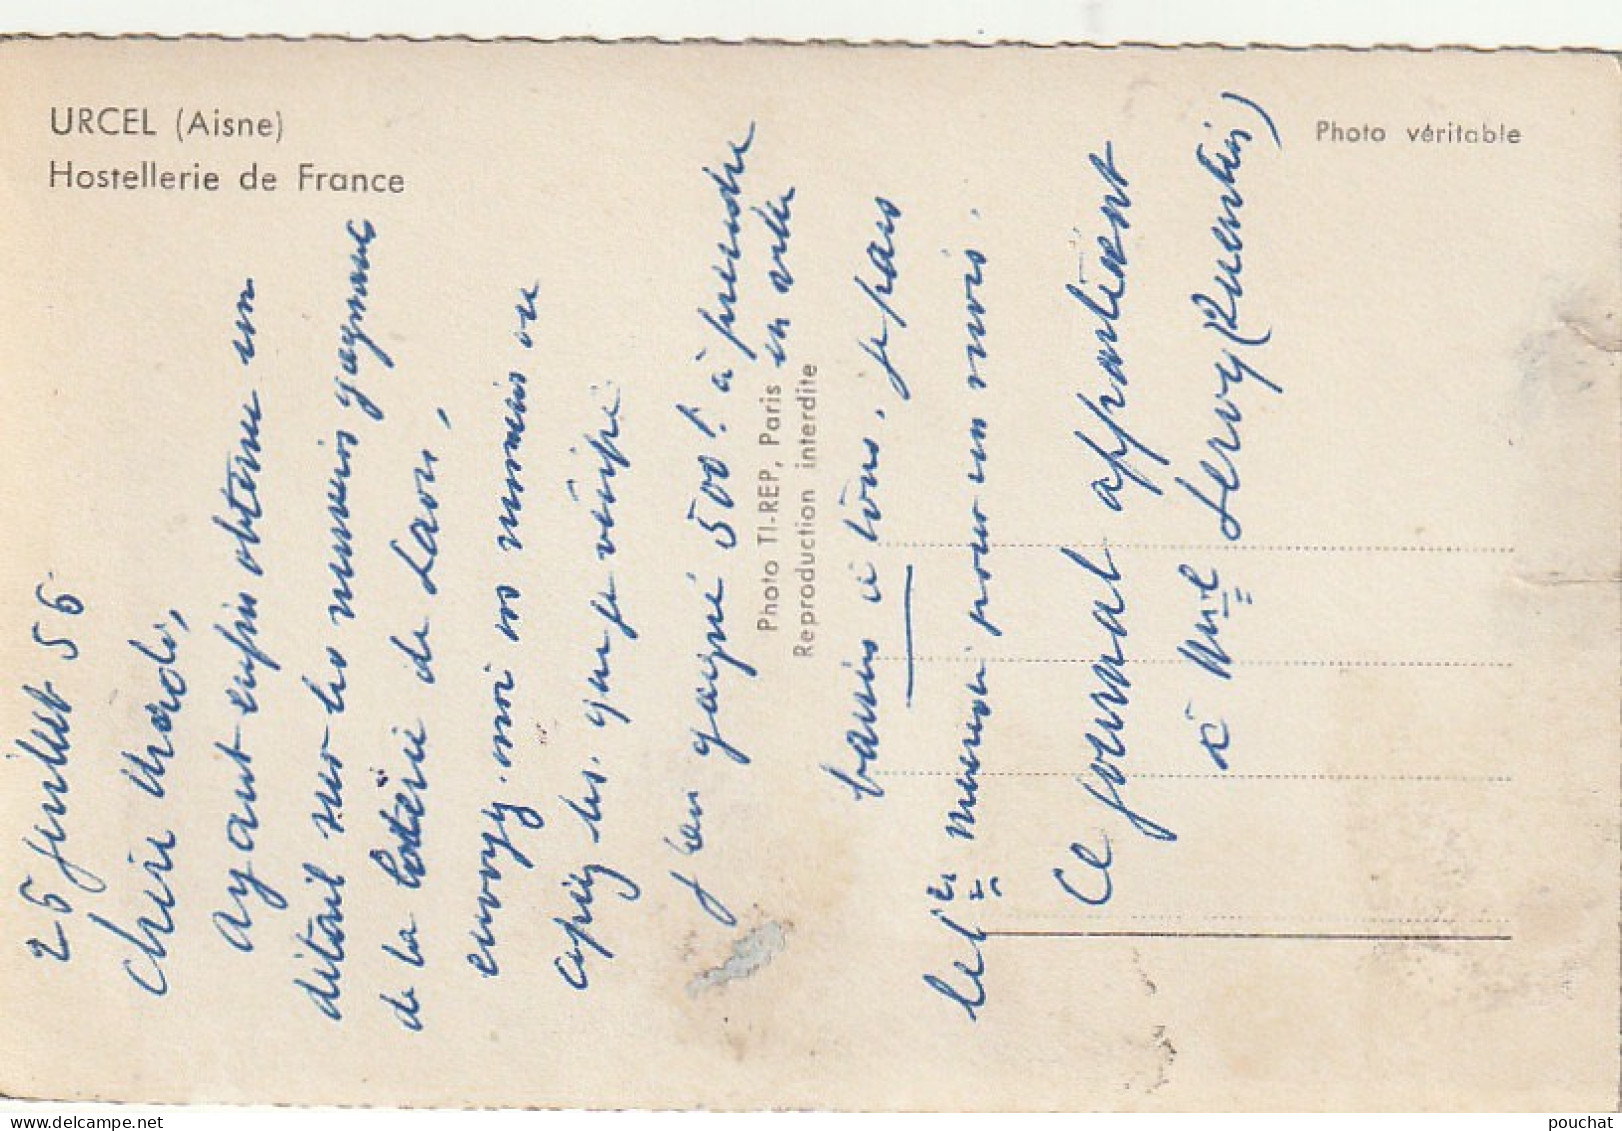 URCEL (Aisne)
Hostellerie de France
Photo véritable
Photo TI-REP, Paris
Reproduction interdite
25 juillet 56
Chère
Ayant enfin obtenu un
détail sur les numéros gagnants
de la loterie de Laon,
envoyez-moi vos numéros ou
copiez les. que je vérifie
J'ai gagné 500f à prendre
en ville
baisers à tous. je pars
le 1er mercredi pour un mois.
Ce journal appartient
à Mme Leroy (Quentin)
www.delcampe.net
pouchat